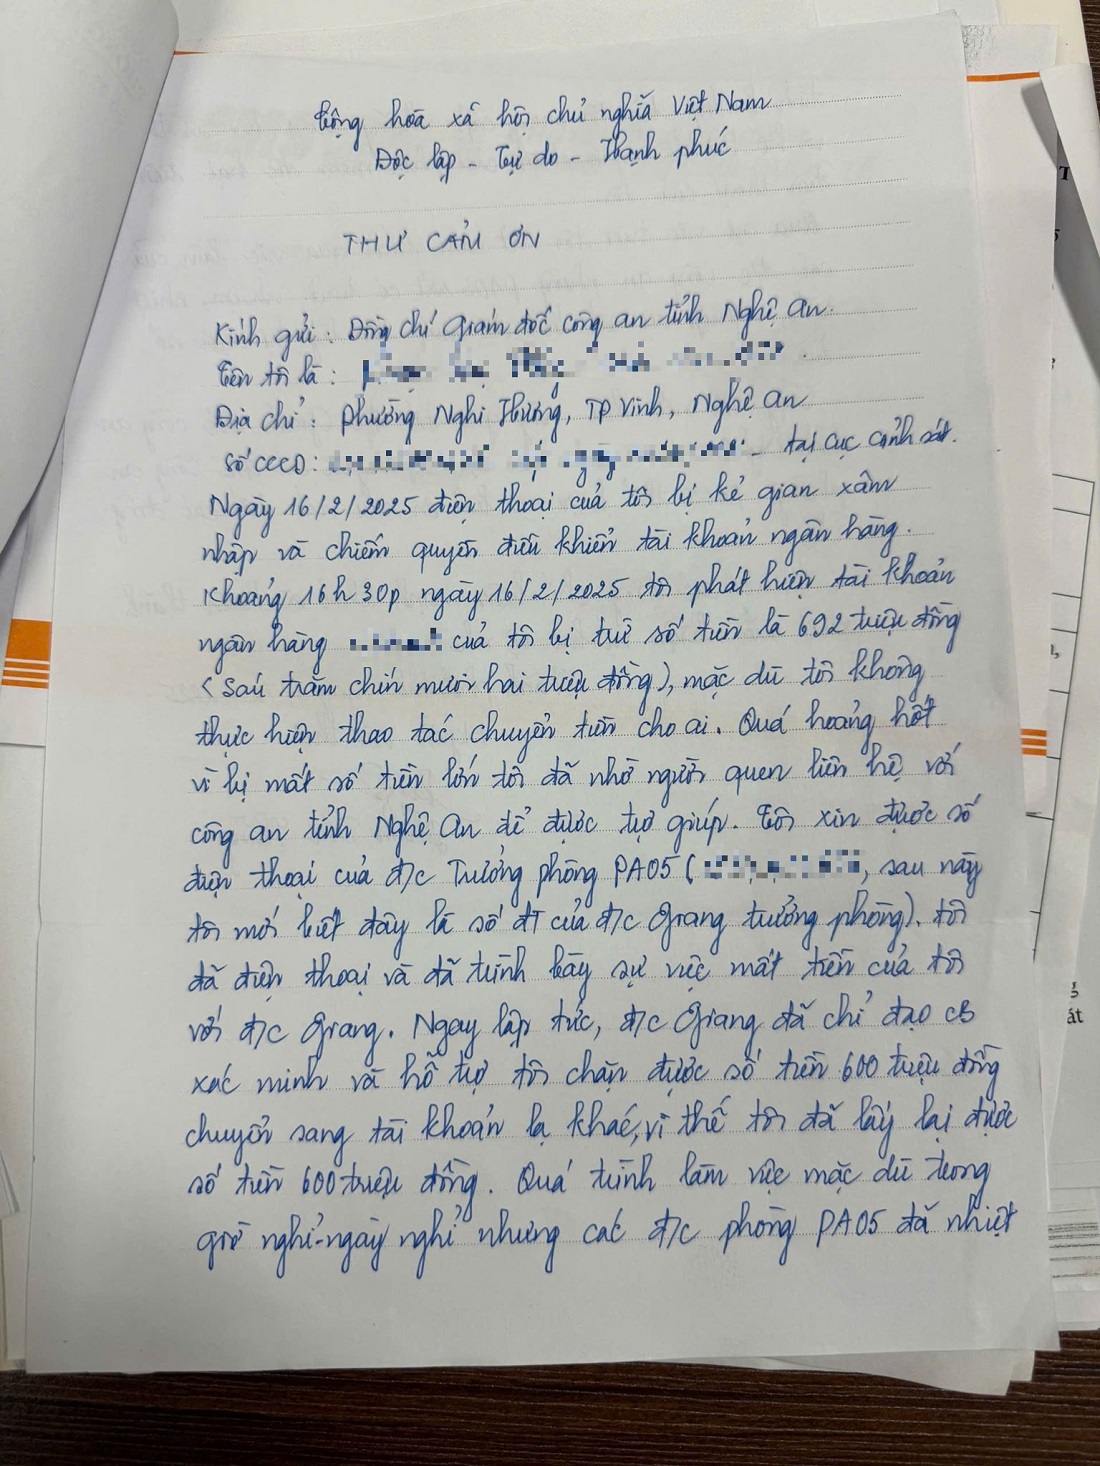 Cộng hoà xã hội chủ nghĩa Việt Nam
Độc lập - Tự do - Hạnh phúc
THƯ CẢM ƠN
Kính gửi: Đồng chí Giám đốc công an tỉnh Nghệ An.
Tên tôi là:
Địa chỉ: phường Nghi Hương, TP Vinh, Nghệ An
Số CCCD: tại cục cảnh sát.
Ngày 16/2/2025 điện thoại của tôi bị kẻ gian xâm
nhập và chiếm quyền điều khiển tài khoản ngân hàng.
Khoảng 16h30p ngày 16/2/2025 tôi phát hiện tài khoản
ngân hàng của tôi bị trừ số tiền là 692 triệu đồng
(Sáu trăm chín mươi hai triệu đồng), mặc dù tôi không
thực hiện thao tác chuyển tiền cho ai. Quá hoảng hốt
vì bị mất số tiền lớn tôi đã nhờ người quen liên hệ với
công an tỉnh Nghệ An để được trợ giúp. Tôi xin được số
điện thoại của đ/c Trưởng phòng PA05 (, sau này
tôi mới biết đây là số ĐT của đ/c Giang trưởng phòng). tôi
đã điện thoại và đã trình bày sự việc mất tiền của tôi
với đ/c Giang. Ngay lập tức, đ/c Giang đã chỉ đạo CB
xác minh và hỗ trợ tôi chặn được số tiền 600 triệu đồng
chuyển sang tài khoản lạ khác, vì thế tôi đã lấy lại được
số tiền 600 triệu đồng. Quá trình làm việc mặc dù trong
giờ nghỉ-ngày nghỉ nhưng các đ/c phòng PA05 đã nhiệt